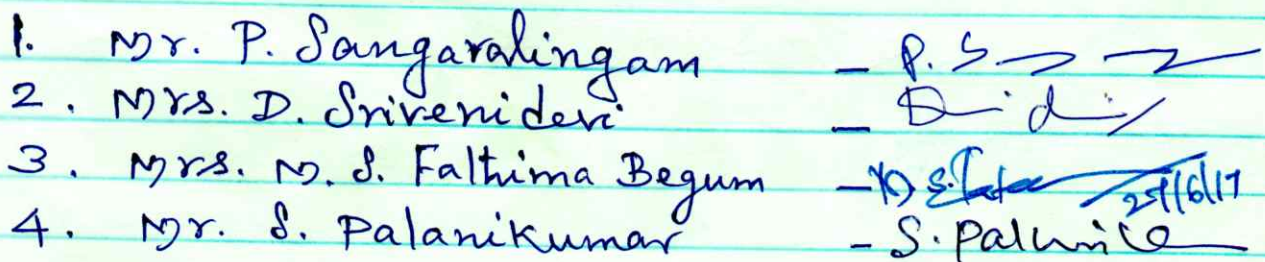 1. Mr. P. Sangaralingam - P. S
2. Mrs. D. Srivenidevi - D
3. Mrs. M. S. Fathima Begum - M S. 29/6/17
4. Mr. S. Palanikumar - S. Pal